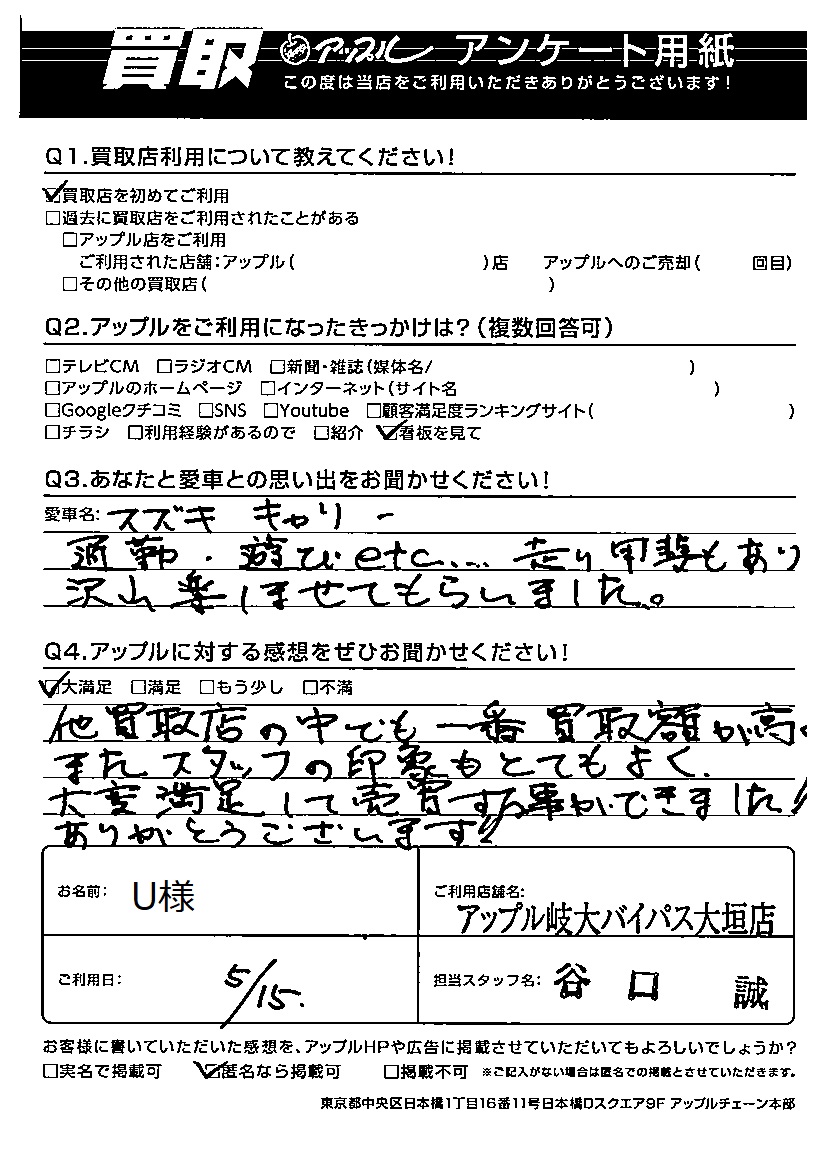 買取 アップル アンケート用紙
この度は当店をご利用いただきありがとうございます！
Q1.買取店利用について教えてください！
☑買取店を初めてご利用
□過去に買取店をご利用されたことがある
□アップル店をご利用
ご利用された店舗：アップル（ ）店 アップルへのご売却（ 回目）
□その他の買取店（ ）
Q2.アップルをご利用になったきっかけは？（複数回答可）
□テレビCM □ラジオCM □新聞・雑誌（媒体名/ ）
□アップルのホームページ □インターネット（サイト名 ）
□Googleクチコミ □SNS □Youtube □顧客満足度ランキングサイト（ ）
□チラシ □利用経験があるので □紹介 ☑看板を見て
Q3.あなたと愛車との思い出をお聞かせください！
愛車名：スズキ キャリー
通勤・遊びetc.... 走り甲斐もあり
沢山楽しませてもらいました。
Q4.アップルに対する感想をぜひお聞かせください！
☑大満足 □満足 □もう少し □不満
他買取店の中でも一番買取額が高く
またスタッフの印象もとてもよく、
大変満足して売買する事ができました!!
ありがとうございます!!
お名前： U様 ご利用店舗名：
アップル岐大バイパス大垣店
ご利用日： 5/15. 担当スタッフ名：谷口 誠
お客様に書いていただいた感想を、アップルHPや広告に掲載させていただいてもよろしいでしょうか？
□実名で掲載可 ☑匿名なら掲載可 □掲載不可 ※ご記入がない場合は匿名での掲載とさせていただきます。
東京都中央区日本橋1丁目16番11号日本橋Dスクエア9F アップルチェーン本部